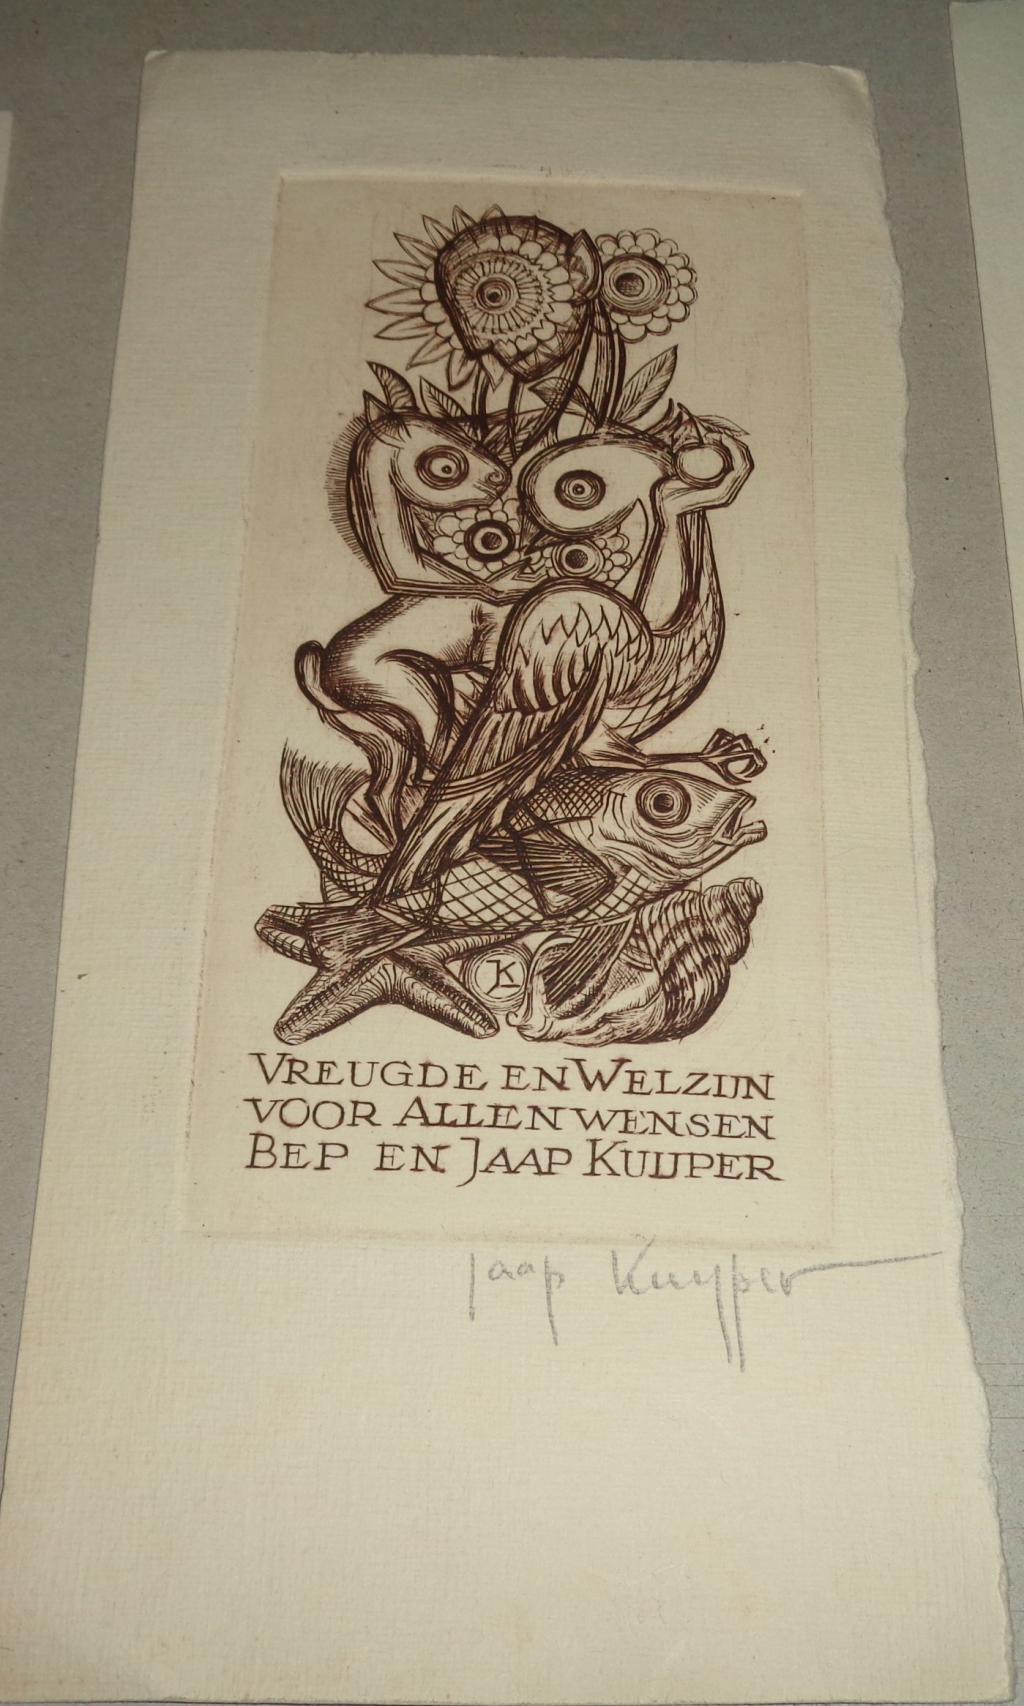 JK
VREUGDE EN WELZIJN
VOOR ALLEN WENSEN
BEP EN JAAP KUIJPER
Jaap Kuyper